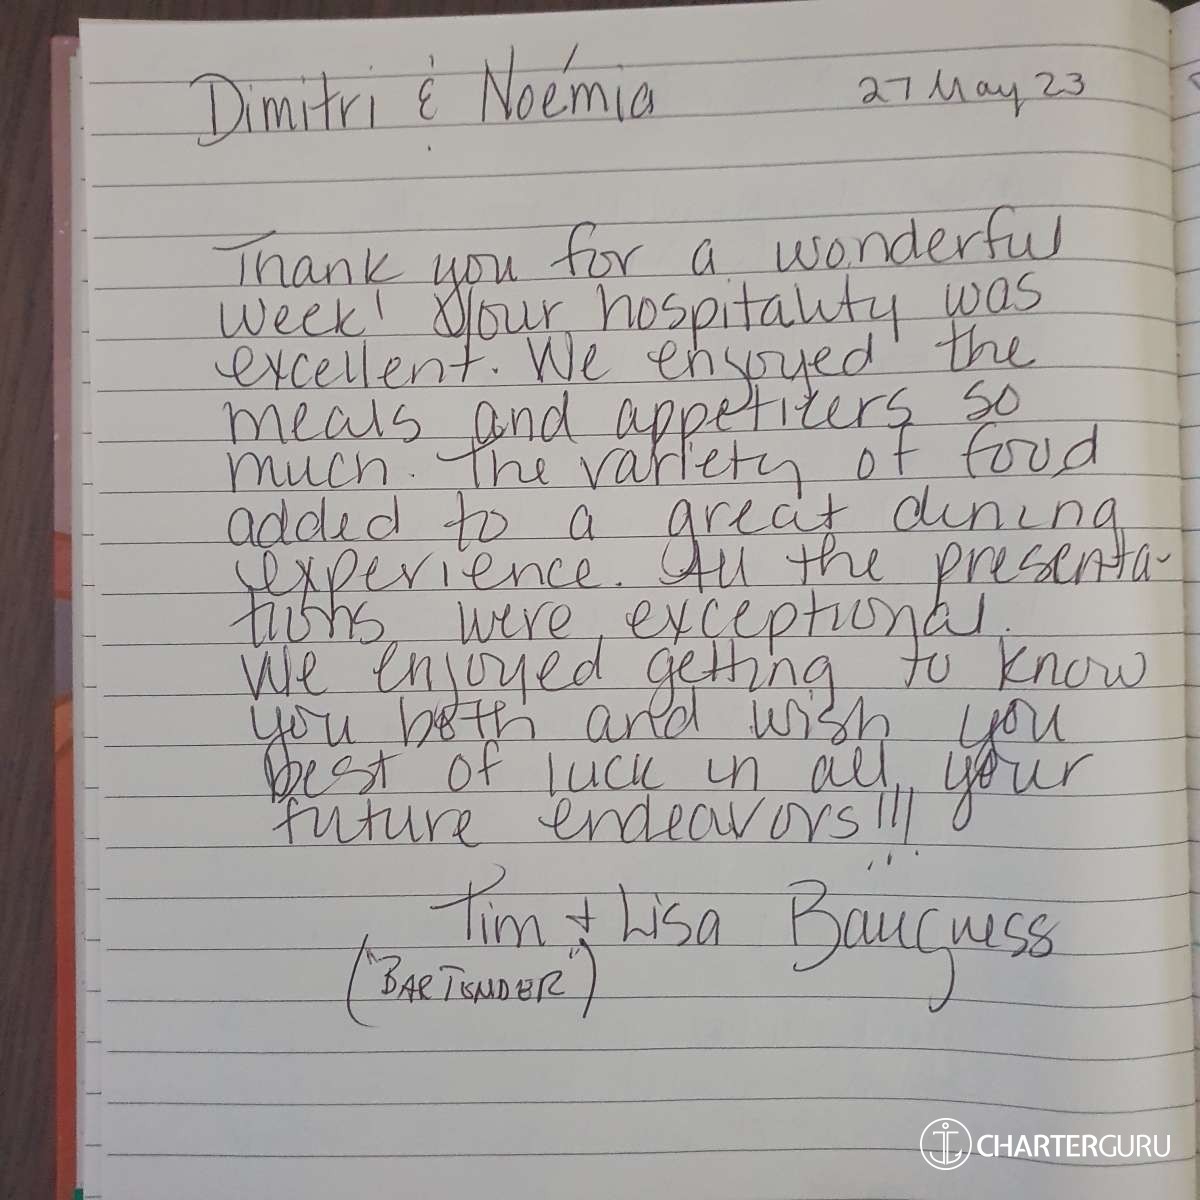 Dimitri & Noémia 27 May 23
Thank you for a wonderful
week! Your hospitality was
excellent. We enjoyed the
meals and appetizers so
much. The variety of food
added to a great dining
experience. All the presenta-
tions were exceptional.
We enjoyed getting to know
you both and wish you
best of luck in all your
future endeavors!!!
Tim + Lisa Bauguess
("BARTENDER")
CHARTERGURU